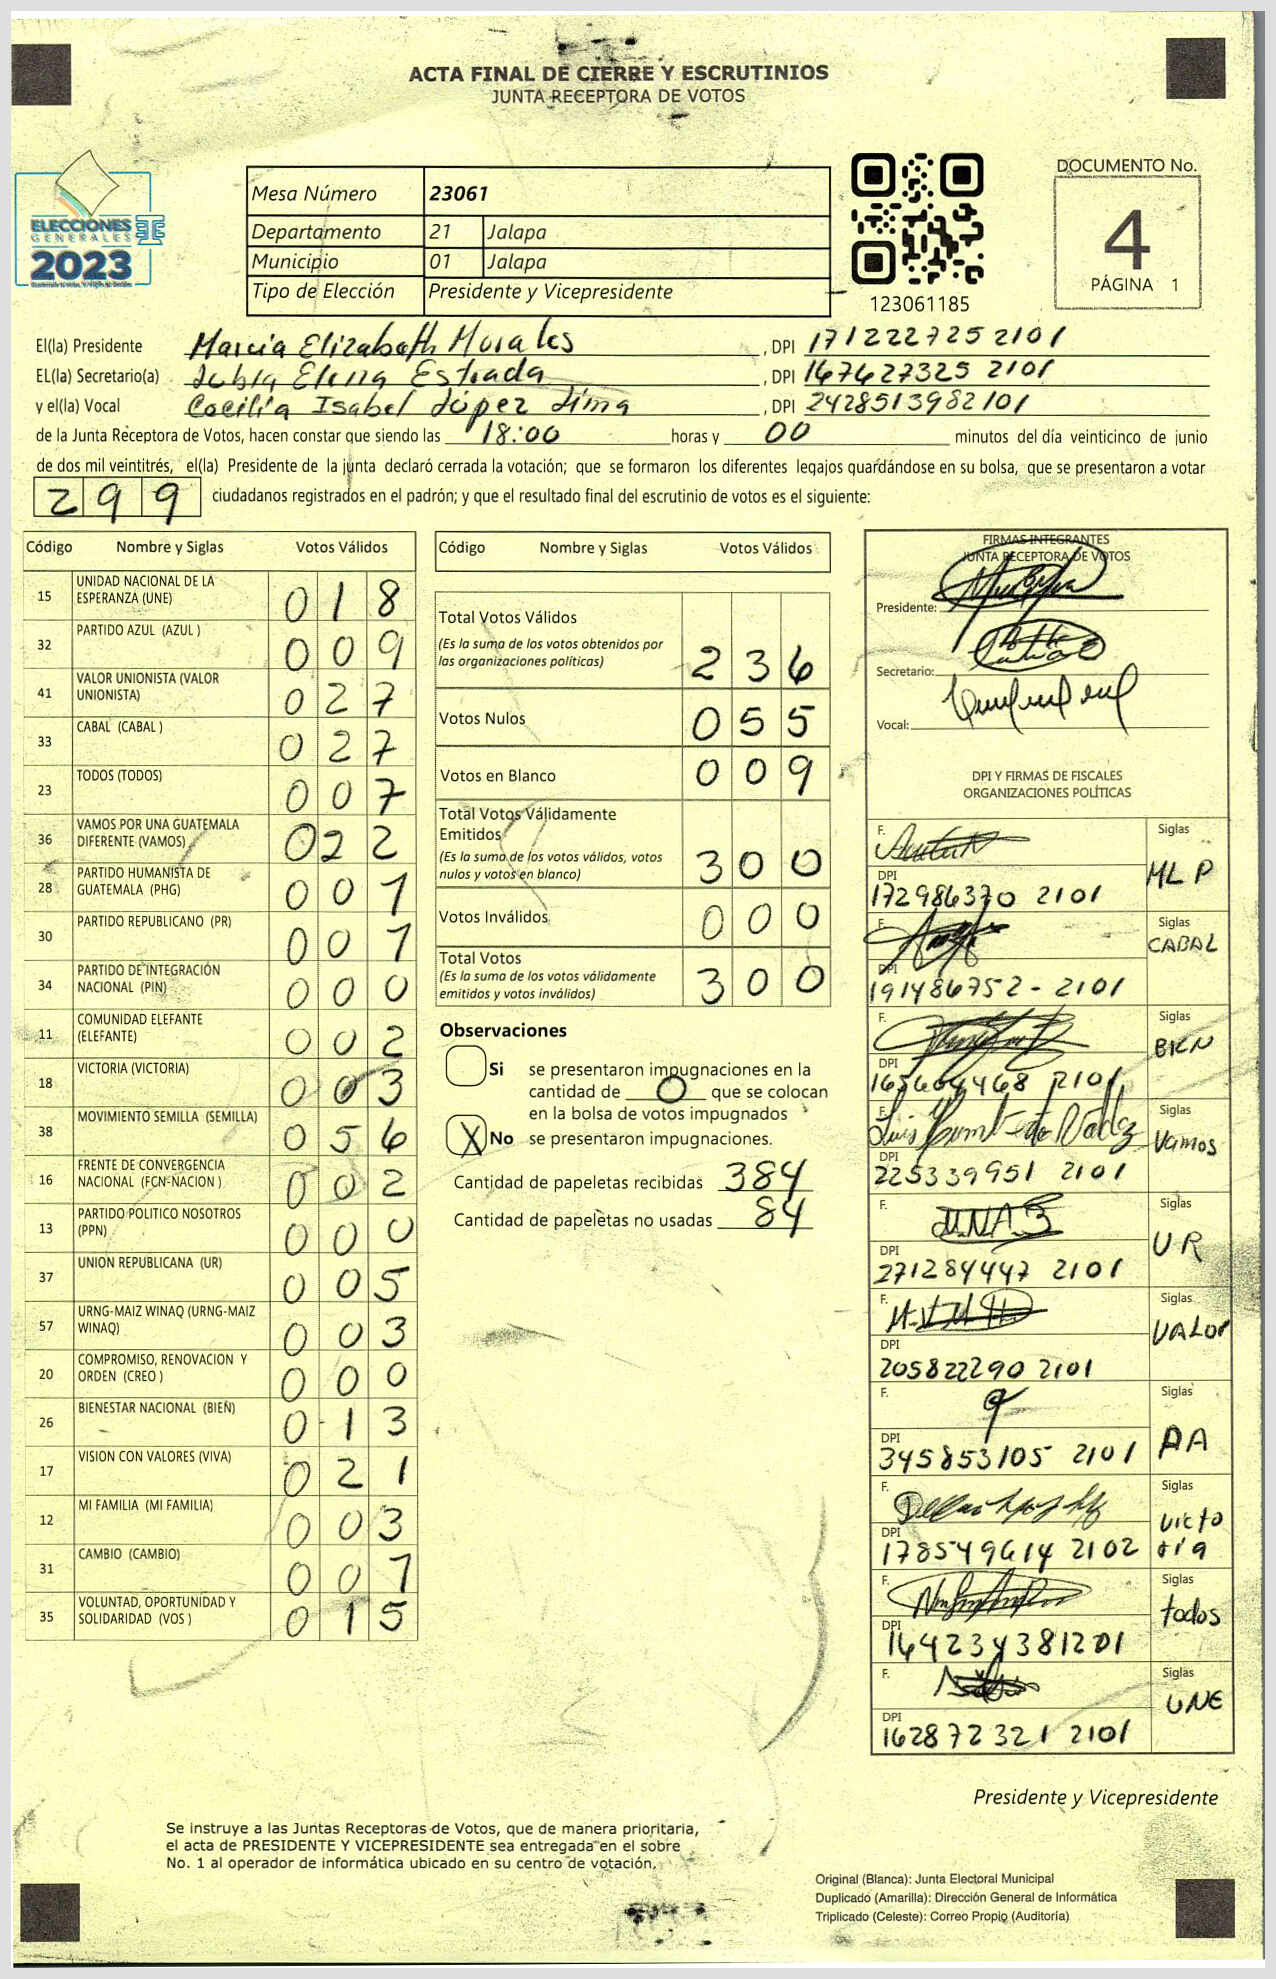 ACTA FINAL DE CIERRE Y ESCRUTINIOS
JUNTA RECEPTORA DE VOTOS
ELECCIONES
GENERALES
2023
Mesa Número 23061
Departamento 21 Jalapa
Municipio 01 Jalapa
Tipo de Elección Presidente y Vicepresidente
123061185
DOCUMENTO No.
4
PÁGINA 1
El(la) Presidente Marcia Elizabeth Morales , DPI 171222725 2101
EL(la) Secretario(a) Elena Estrada , DPI 167627325 2101
y el(la) Vocal Cecilia Isabel López Lima , DPI 2428513982101
de la Junta Receptora de Votos, hacen constar que siendo las 18:00 horas y 00 minutos del día veinticinco de junio
de dos mil veintitrés, el(la) Presidente de la junta declaró cerrada la votación; que se formaron los diferentes legajos guardándose en su bolsa, que se presentaron a votar
299 ciudadanos registrados en el padrón; y que el resultado final del escrutinio de votos es el siguiente:
Código Nombre y Siglas Votos Válidos
15 UNIDAD NACIONAL DE LA ESPERANZA (UNE) 018
32 PARTIDO AZUL (AZUL ) 009
41 VALOR UNIONISTA (VALOR UNIONISTA) 027
33 CABAL (CABAL ) 027
23 TODOS (TODOS) 007
36 VAMOS POR UNA GUATEMALA DIFERENTE (VAMOS) 022
28 PARTIDO HUMANISTA DE GUATEMALA (PHG) 001
30 PARTIDO REPUBLICANO (PR) 001
34 PARTIDO DE INTEGRACIÓN NACIONAL (PIN) 000
11 COMUNIDAD ELEFANTE (ELEFANTE) 002
18 VICTORIA (VICTORIA) 003
38 MOVIMIENTO SEMILLA (SEMILLA) 056
16 FRENTE DE CONVERGENCIA NACIONAL (FCN-NACION ) 002
13 PARTIDO POLITICO NOSOTROS (PPN) 000
37 UNION REPUBLICANA (UR) 005
57 URNG-MAIZ WINAQ (URNG-MAIZ WINAQ) 003
20 COMPROMISO, RENOVACION Y ORDEN (CREO ) 000
26 BIENESTAR NACIONAL (BIEN) 013
17 VISION CON VALORES (VIVA) 021
12 MI FAMILIA (MI FAMILIA) 003
31 CAMBIO (CAMBIO) 001
35 VOLUNTAD, OPORTUNIDAD Y SOLIDARIDAD (VOS ) 015
Código Nombre y Siglas Votos Válidos
Total Votos Válidos 236
(Es la suma de los votos obtenidos por
las organizaciones políticas)
Votos Nulos 055
Votos en Blanco 009
Total Votos Válidamente
Emitidos 300
(Es la suma de los votos válidos, votos
nulos y votos en blanco)
Votos Inválidos 000
Total Votos 300
(Es la suma de los votos válidamente
emitidos y votos inválidos)
Observaciones
Si se presentaron impugnaciones en la
cantidad de 0 que se colocan
en la bolsa de votos impugnados
X No se presentaron impugnaciones.
Cantidad de papeletas recibidas 384
Cantidad de papeletas no usadas 84
FIRMAS INTEGRANTES
JUNTA RECEPTORA DE VOTOS
Presidente:
Secretario:
Vocal:
DPI Y FIRMAS DE FISCALES
ORGANIZACIONES POLÍTICAS
F. Siglas MLP
DPI 172986370 2101
F. Siglas CABAL
DPI 191486752-2101
F. Siglas BIEN
DPI 165604468 2101
F. Luis Siglas Vamos
DPI 225339951 2101
F. Siglas UR
DPI 271284447 2101
F. Siglas VALOR
DPI 205822290 2101
F. Siglas PA
DPI 345853105 2101
F. Siglas victoria
DPI 178549614 2102
F. Siglas todos
DPI 164234381201
F. Siglas UNE
DPI 162872321 2101
Presidente y Vicepresidente
Se instruye a las Juntas Receptoras de Votos, que de manera prioritaria,
el acta de PRESIDENTE Y VICEPRESIDENTE sea entregada en el sobre
No. 1 al operador de informática ubicado en su centro de votación.
Original (Blanca): Junta Electoral Municipal
Duplicado (Amarilla): Dirección General de Informática
Triplicado (Celeste): Correo Propio (Auditoría)